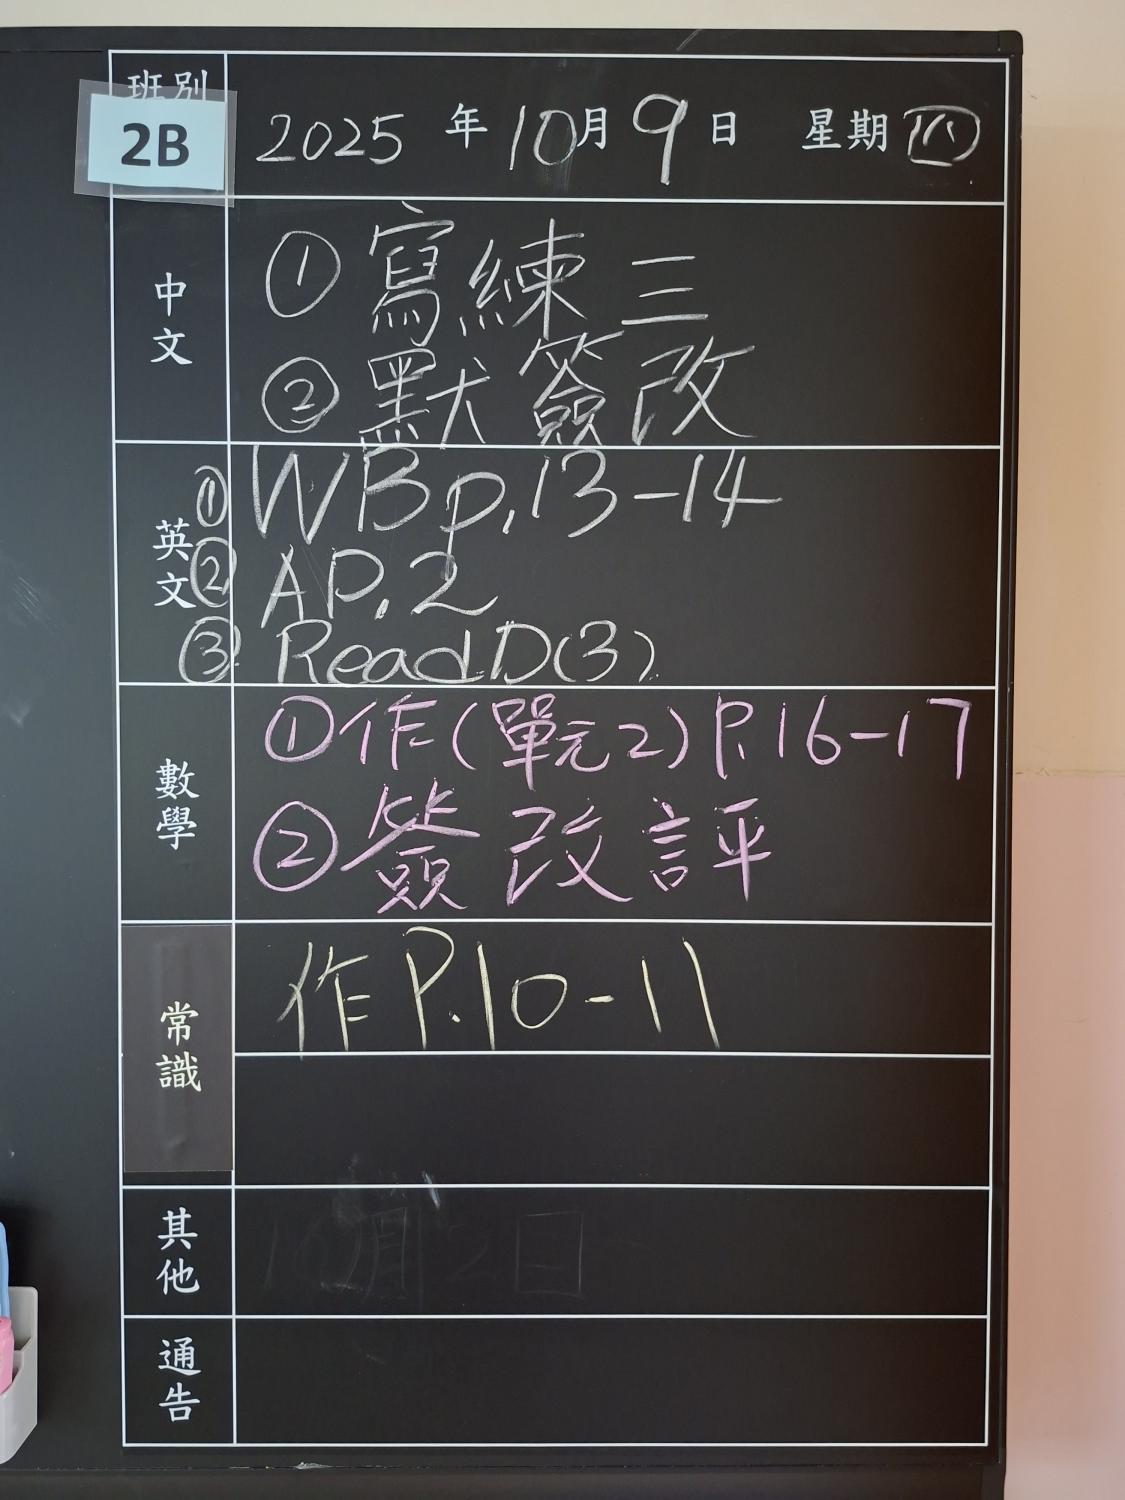 班別
2B
2025 年 10月 9日 星期四
中文
① 寫練三
② 默簽改
英文
① WB p.13-14
② AP.2
③ ReadD(3)
數學
① 作(單元2) P.16-17
② 簽改評
常識
作 P.10-11
其他
10月2日
通告